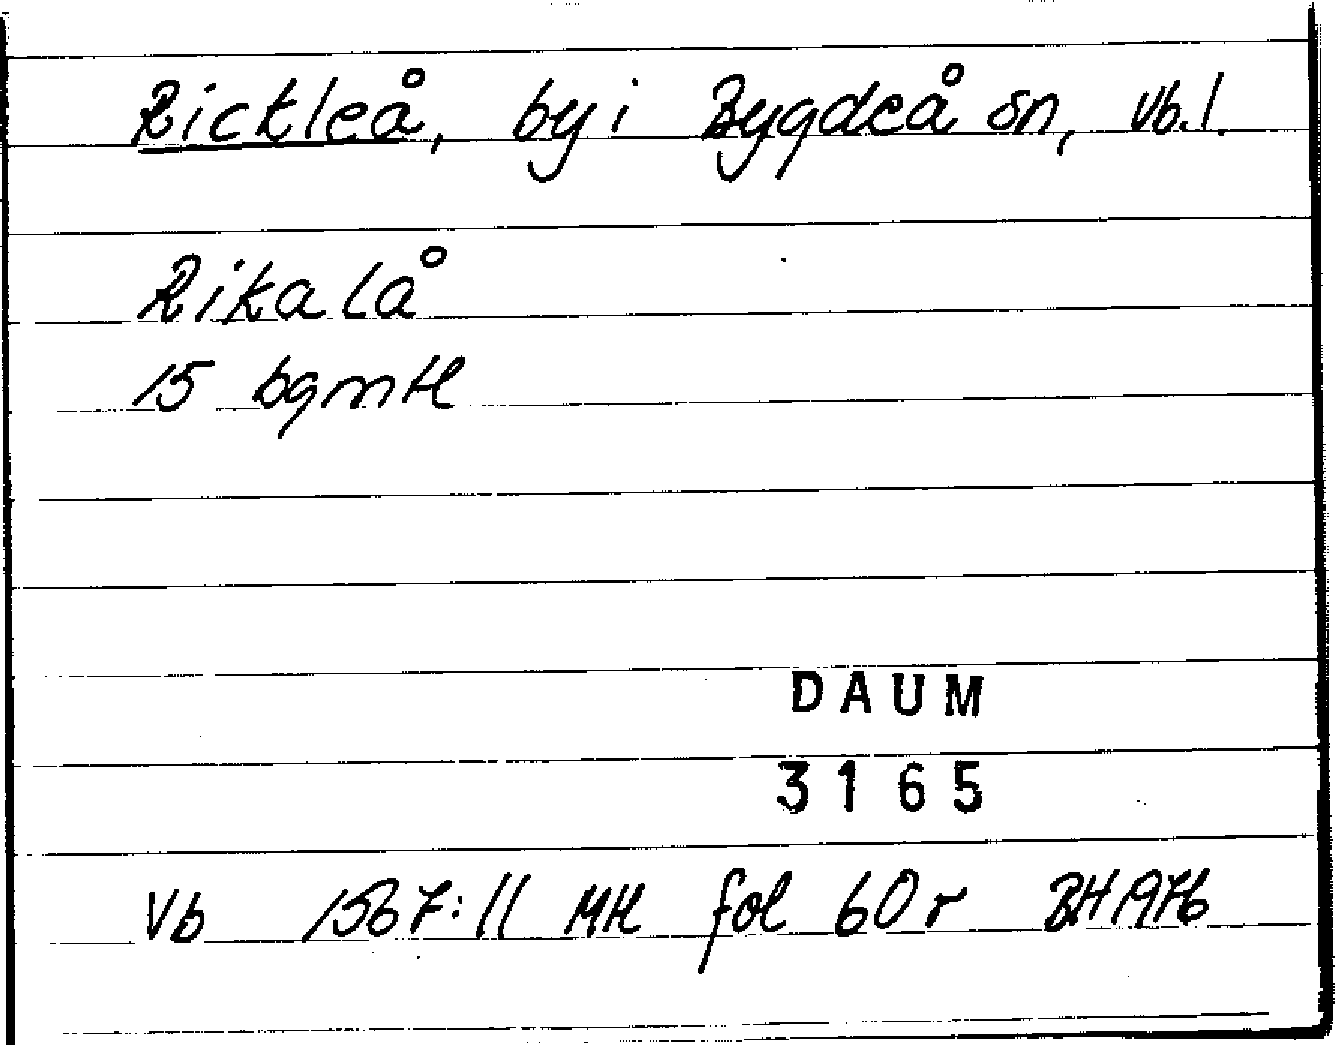 Rickleå, by i Bygdeå sn, Vb.l.
Rikalå
15 bgmtl
DAUM
3165
Vb 1567:11 Mtl fol 60r BH1976